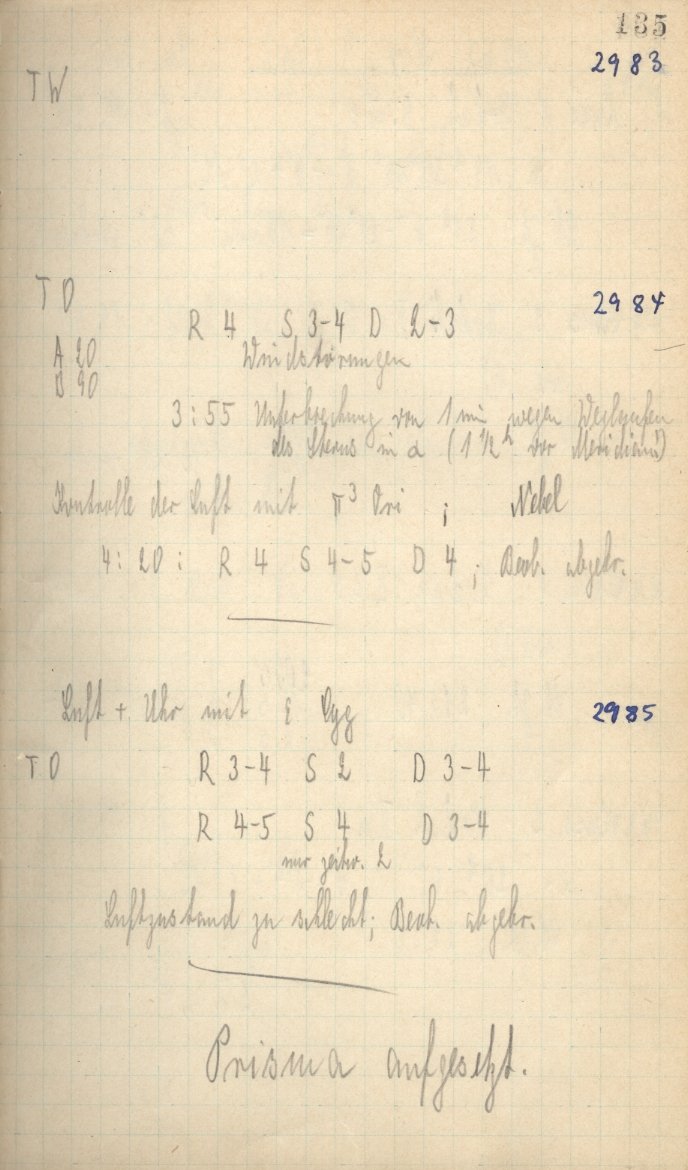 135
2983
TW
TO
2984
R 4 S 3-4 D 2-3
A 20 Windstörungen
B 90
3:55 Unterbrechung von 1 min wegen Weglaufen
des Sterns in α (1 1/2 h vor Meridian)
Kontrolle der Luft mit π3 Ori ; Nebel
4:20: R 4 S 4-5 D 4 ; Beob. abgebr.
Luft + Uhr mit ε Cyg 2985
TO R 3-4 S 2 D 3-4
R 4-5 S 4 D 3-4
nur zeitw. 2
Luftzustand zu schlecht; Beob. abgebr.
Prisma aufgesetzt.